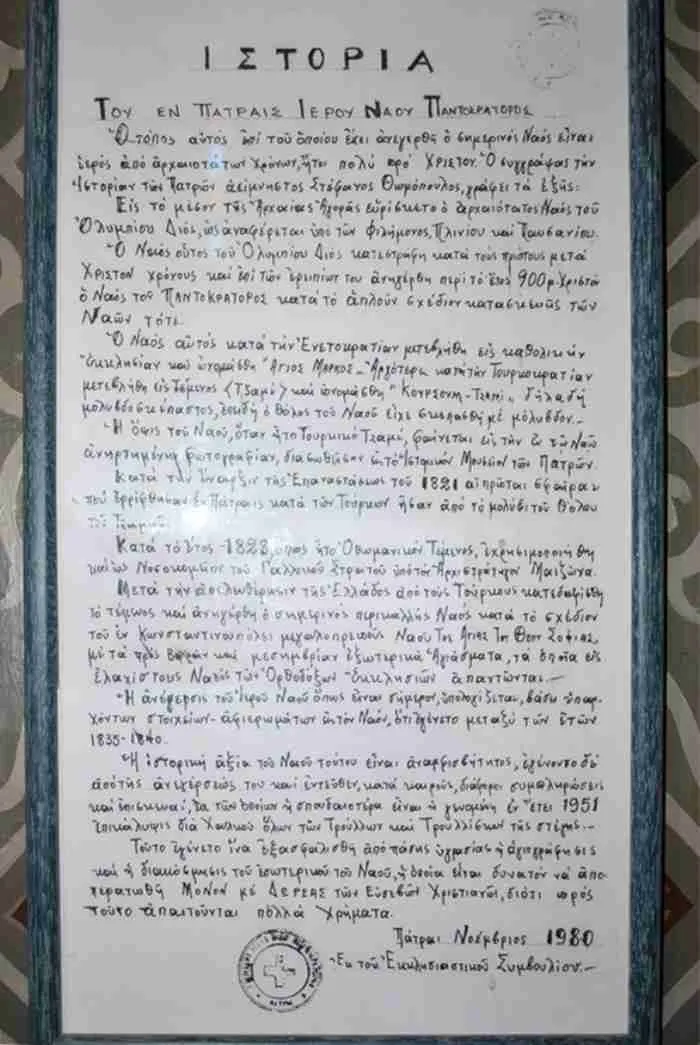 ΙΣΤΟΡΙΑ
ΤΟΥ ΕΝ ΠΑΤΡΑΙΣ ΙΕΡΟΥ ΝΑΟΥ ΠΑΝΤΟΚΡΑΤΟΡΟΣ
Ὁ τόπος αὐτὸς ἐπὶ τοῦ ὁποίου ἔχει ἀνεγερθῆ ὁ σημερινὸς Ναὸς εἶναι
ἱερὸς ἀπὸ ἀρχαιοτάτων χρόνων, ἤτοι πολὺ πρὸ Χριστοῦ. Ὁ συγγράψας τὴν
Ἱστορίαν τῶν Πατρῶν ἀείμνηστος Στέφανος Θωμόπουλος, γράφει τὰ ἑξῆς:
Εἰς τὸ μέσον τῆς Ἀρχαίας Ἀγορᾶς εὑρίσκετο ὁ ἀρχαιότατος Ναὸς τοῦ
Ὀλυμπίου Διός, ὡς ἀναφέρεται ὑπὸ τῶν Φιλήμονος, Πλινίου καὶ Παυσανίου.
Ὁ Ναὸς οὗτος τοῦ Ὀλυμπίου Διὸς κατεστράφη κατὰ τοὺς πρώτους μετὰ
Χριστὸν χρόνους καὶ ἐπὶ τῶν ἐρειπίων του ἀνηγέρθη περὶ τὸ ἔτος 900 μ. Χριστὸ
ὁ Ναὸς τοῦ ΠΑΝΤΟΚΡΑΤΟΡΟΣ κατὰ τὸ ἁπλοῦν σχέδιον κατασκευῆς τῶν
Ναῶν τότε.
Ὁ Ναὸς αὐτὸς κατὰ τὴν Ἐνετοκρατίαν μετεβλήθη εἰς καθολικὴν
Ἐκκλησίαν καὶ ὠνομάσθη "ΑΓΙΟΣ ΜΑΡΚΟΣ" Ἀργότερα κατὰ τὴν Τουρκοκρατίαν
μετεβλήθη εἰς Τέμενος (Τζαμί) καὶ ὠνομάσθη "ΚΟΥΡΣΟΥΜ-ΤΖΑΜΙ" δηλαδὴ
μολυβδοσκέπαστος, ἐπειδὴ ὁ θόλος τοῦ Ναοῦ εἶχε σκεπασθῆ μὲ μόλυβδον.-
Ἡ ὄψις τοῦ Ναοῦ, ὅταν ἦτο Τουρκικὸ Τζαμί, φαίνεται εἰς τὴν ἐν τῷ Ναῷ
ἀνηρτημένην φωτογραφίαν, διασωθεῖσαν Ἱστορικὸν Μουσεῖον τῶν Πατρῶν.
Κατὰ τὴν ἔναρξιν τῆς Ἐπαναστάσεως τοῦ 1821 αἱ πρῶται σφαῖραι
ποὺ ἐρρίφθησαν ἐν Πάτραις κατὰ τῶν Τούρκων ἦσαν ἀπὸ τὸ μολύβι τοῦ θόλου
τοῦ
Κατὰ τὸ ἔτος 1828, ὅπως ἦτο Ὀθωμανικὸν Τέμενος, ἐχρησιμοποιήθη
καὶ ὡς Νοσοκομεῖον τοῦ Γαλλικοῦ Στρατοῦ ὑπὸ τὸν Ἀρχιστράτηγον Μαιζῶνα.
Μετὰ τὴν ἀπελευθέρωσιν τῆς Ἑλλάδος ἀπὸ τοὺς Τούρκους κατεδαφίσθη
τὸ τέμενος καὶ ἀνηγέρθη ὁ σημερινὸς περικαλλὴς Ναὸς κατὰ τὸ σχέδιον
τοῦ ἐν Κωνσταντινουπόλει μεγαλοπρεποῦς Ναοῦ ΤΗΣ ΑΓΙΑΣ ΤΟΥ ΘΕΟΥ ΣΟΦΙΑΣ,
μὲ τὰ πρὸς βορρᾶν καὶ μεσημβρίαν ἐξωτερικὰ Ἁγιάσματα, τὰ ὁποῖα εἰς
ἐλαχίστους Ναοὺς τῶν Ὀρθοδόξων Ἐκκλησιῶν ἀπαντῶνται.-
Ἡ ἀνέγερσις τοῦ Ἱεροῦ Ναοῦ ὅπως εἶναι σήμερον, ὑπολογίζεται, βάσει ὑπαρ-
χόντων στοιχείων-ἀφιερωμάτων εἰς τὸν Ναόν, ὅτι ἐγένετο μεταξὺ τῶν ἐτῶν
1835-1840.
Ἡ ἱστορικὴ ἀξία τοῦ Ναοῦ τούτου εἶναι ἀναμφισβήτητος, ἐγένοντο δὲ
ἀπὸ τῆς ἀνεγέρσεώς του καὶ ἐντεῦθεν, κατὰ καιρούς, διάφοροι συμπληρώσεις
καὶ ἐπισκευαί, ἐκ τῶν ὁποίων ἡ σπουδαιοτέρα εἶναι ἡ γενομένη ἐν ἔτει 1951
ἐπικάλυψις διὰ Χαλκοῦ ὅλων τῶν Τρούλλων καὶ Τρουλλίσκων τῆς στέγης.-
Τοῦτο ἐγένετο ἵνα ἐξασφαλισθῇ ἀπὸ πάσης ὑγρασίας ἡ ἁγιογράφησις
καὶ ἡ διακόσμησις τοῦ ἐσωτερικοῦ τοῦ Ναοῦ, ἡ ὁποία εἶναι δυνατὸν νὰ ἀπο-
περατωθῇ ΜΟΝΟΝ ΜΕ ΔΩΡΕΑΣ τῶν Εὐσεβῶν Χριστιανῶν, διότι πρὸς
τοῦτο ἀπαιτοῦνται πολλὰ χρήματα.
Πάτραι Νοέμβριος 1980
Ἐκ τοῦ Ἐκκλησιαστικοῦ Συμβουλίου.-